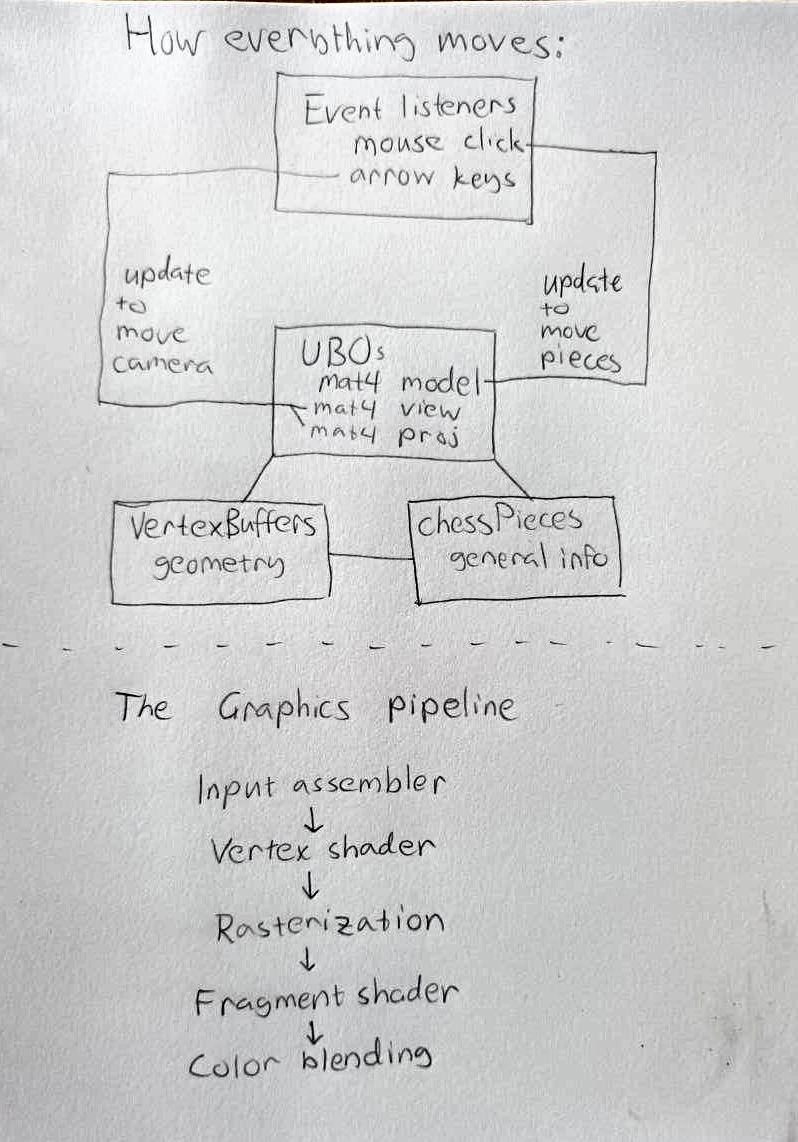 How everything moves:
Event listeners
mouse click
arrow keys
update
to
move
camera
update
to
move
pieces
UBOs
mat4 model
mat4 view
mat4 proj
VertexBuffers
geometry
chessPieces
general info
The Graphics pipeline
Input assembler
↓
Vertex shader
↓
Rasterization
↓
Fragment shader
↓
Color blending